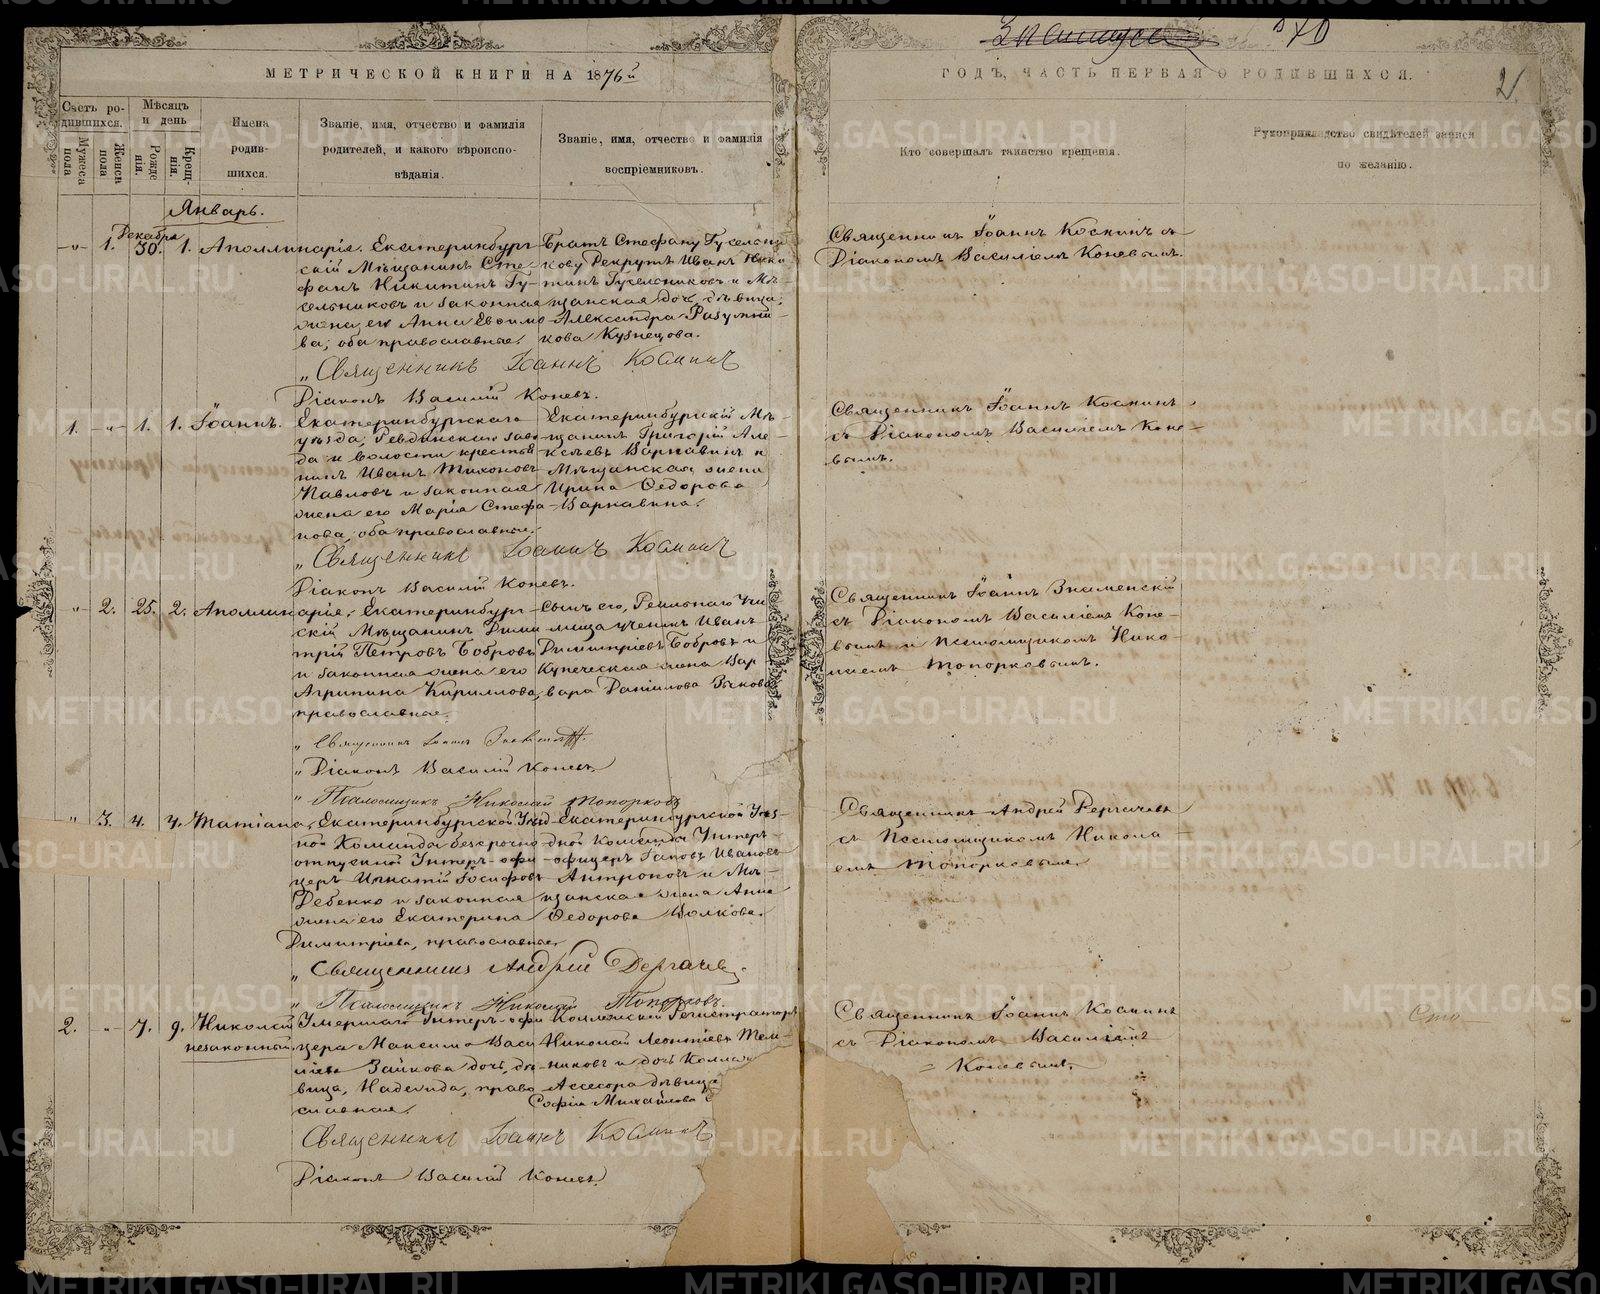 МЕТРИЧЕСКОЙ КНИГИ НА 1876й
ГОДЪ, ЧАСТЬ ПЕРВАЯ О РОДИВШИХСЯ.
2
Счетъ родившихся.
Мужеска пола
Женска пола
Мѣсяцъ и день
Рожденія.
Крещенія.
Имена родившихся.
Званіе, имя, отчество и фамилія
родителей, и какого вѣроиспо-
вѣданія.
Званіе, имя, отчество и фамилія
воспріемниковъ.
Кто совершалъ таинство крещенія.
Рукоприкладство свидѣтелей записи
по желанію.
Январь.
Декабря
1. 30. 1. Аполлинарія.
Екатеринбург-
скій Мѣщанинъ Сте-
фанъ Никитинъ Гу-
сельниковъ и законная
жена его Анна Евфимо-
ва; оба православные.
Братъ Стефану Гусельни-
кову Рекрутъ Иванъ Ники-
тинъ Гусельниковъ и Мѣ-
щанская дочь, дѣвица,
Александра Разумни-
кова Кузнецова.
Священникъ Іоаннъ Коснинъ съ
Діакономъ Василіемъ Коневымъ.
„Священникъ Іоаннъ Коснинъ
Діаконъ Василій Коневъ.
1. 1. 1. Іоаннъ.
Екатеринбургскаго
уѣзда, Ревдинскаго заво-
да и волости крестья-
нинъ Иванъ Тихоновъ
Павловъ и законная
жена его Марія Стефа-
нова, оба православные.
Екатеринбургскій Мѣ-
щанинъ Григорій Але-
ксѣевъ Варнавинъ и
Мѣщанская жена
Ирина Ѳедорова
Варнавина.
Священникъ Іоаннъ Коснинъ
съ Діакономъ Василіемъ Коне-
вымъ.
„Священникъ Іоаннъ Коснинъ
Діаконъ Василій Коневъ.
2. 25. 2. Аполлинарія.
Екатеринбург-
скій Мѣщанинъ Дими-
трій Петровъ Бобровъ
и законная жена его
Агрипина Кириллова,
православные.
Сынъ его, Реальнаго Учи-
лища ученикъ Иванъ
Димитріевъ Бобровъ и
Купеческая жена Вар-
вара Даніилова Зыкова
Священникъ Іоаннъ Знаменскій
съ Діакономъ Василіемъ Коне-
вымъ и Псаломщикомъ Нико-
лаемъ Топорковымъ.
„Священникъ Іоаннъ
„Діаконъ Василій Коневъ
„Псаломщикъ Николай Топорковъ
3. 4. 4. Татіана.
Екатеринбургской Уѣзд-
ной Команды безсрочно-
отпускной Унтеръ-офи-
церъ Игнатій Іосифовъ
Дебенко и законная
жена его Екатерина
Димитріева, православные.
Екатеринбургской Уѣз-
дной Команды Унтеръ-
офицеръ Іаковъ Ивановъ
Антроповъ и Мѣ-
щанская жена Анна
Ѳедорова Волкова.
Священникъ Андрей Дергачевъ
съ Псаломщикомъ Никола-
емъ Топорковымъ.
„Священникъ Андрей Дергачевъ.
„Псаломщикъ Николай Топорковъ.
2. 7. 9. Николай
незаконный.
Умершаго Унтеръ-офи-
цера Максима Васи-
льева Зайкова дочь, дѣ-
вица, Надежда, право-
славная.
Коллежскій Регистраторъ
Николай Леонтіевъ
и дочь
Ассесора дѣвица
Софія Михайлова
Священникъ Іоаннъ Коснинъ
съ Діакономъ Василіемъ
Коневымъ.
Священникъ Іоаннъ Коснинъ
Діаконъ Василій Коневъ.
METRIKI.GASO-URAL.RU